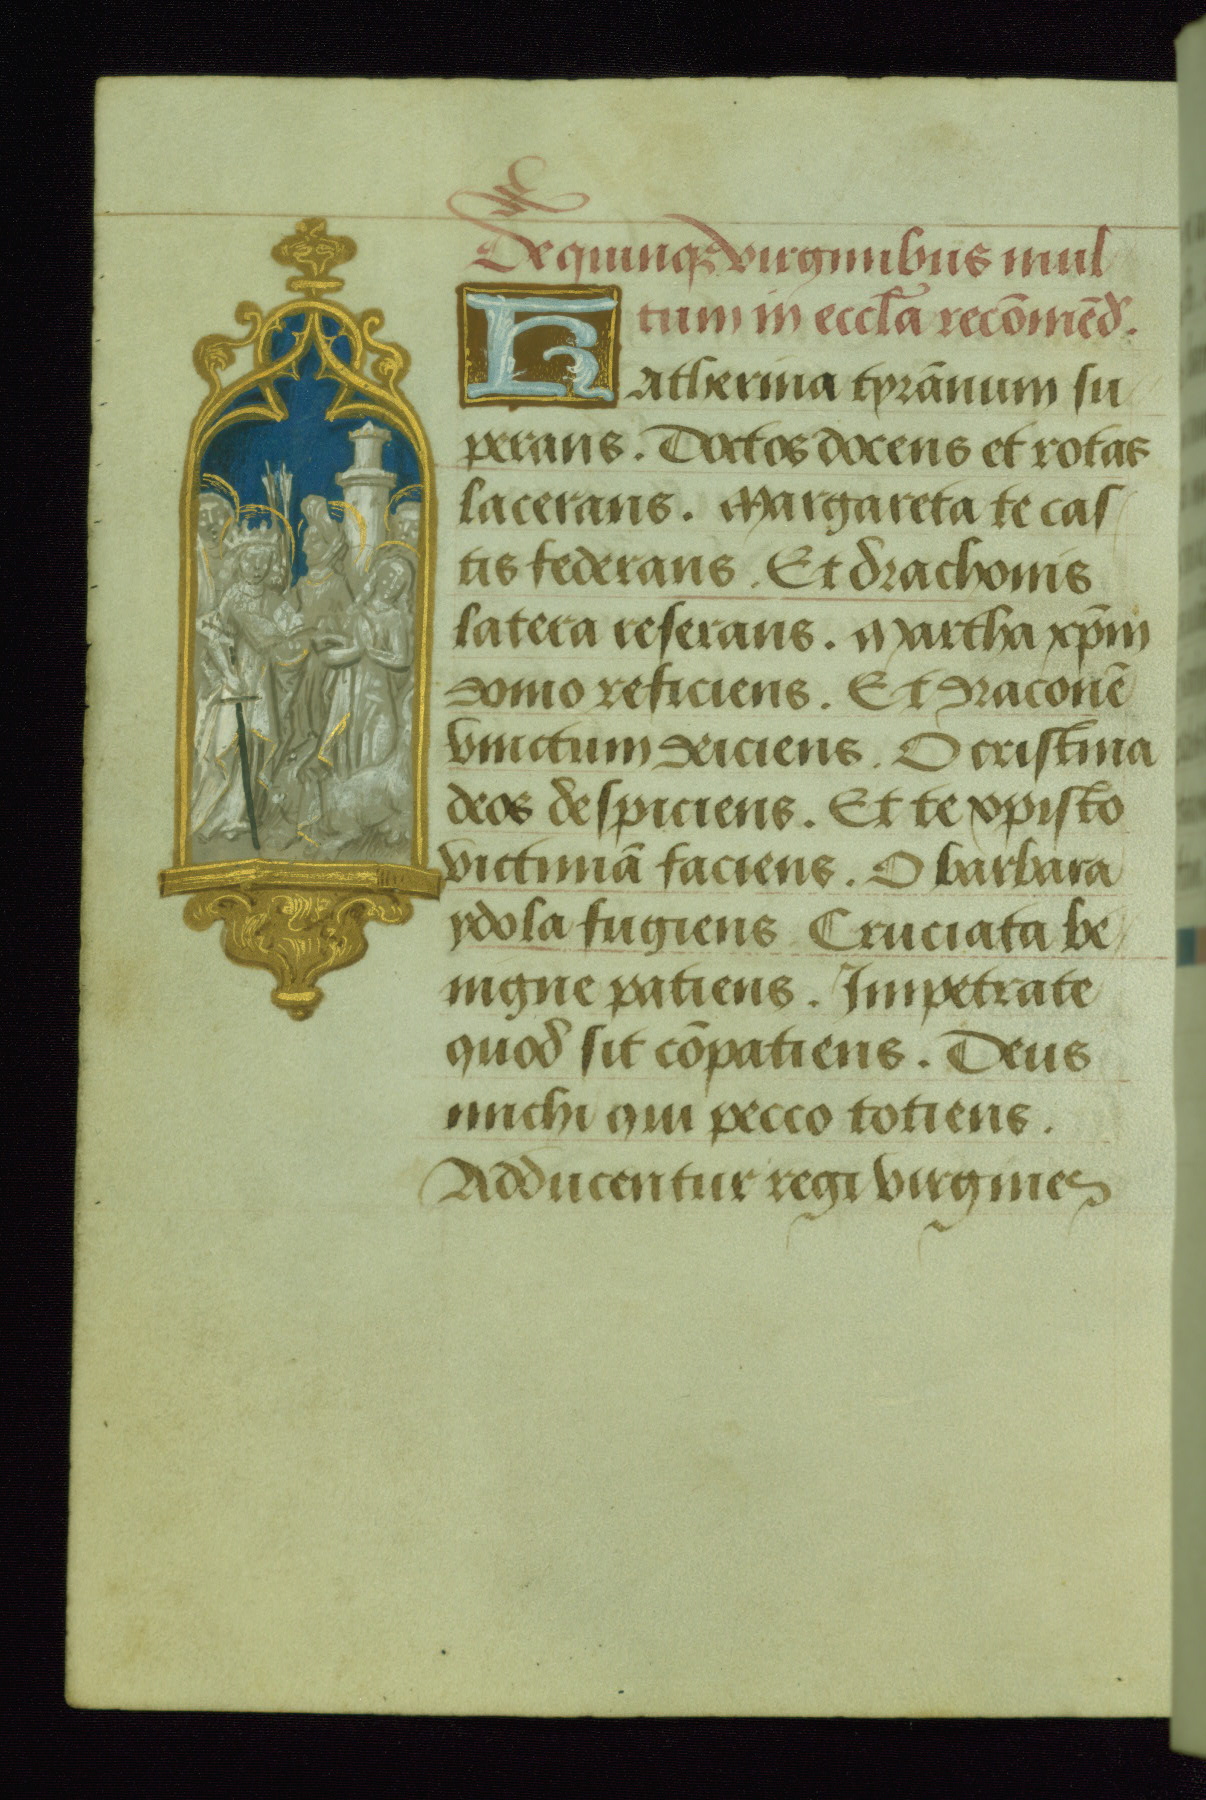 De quinq; virginibus mul
tum in eccl̃a recõmẽd̃.
Katherina tyrãnum su
perans. Doctos docens et rotas
lacerans. Margareta te cas
tis federans. Et drachonis
latera reserans. Martha xp̃m
domo reficiens. Et draconẽ
vinctum deiciens. O cristina
deos despiciens. Et te xpisto
victimã faciens. O barbara
ydola fugiens Cruciata be
nigne patiens. Impetrate
quod sit cõpatiens. Deus
michi qui pecco totiens.
Adducentur regi virgines